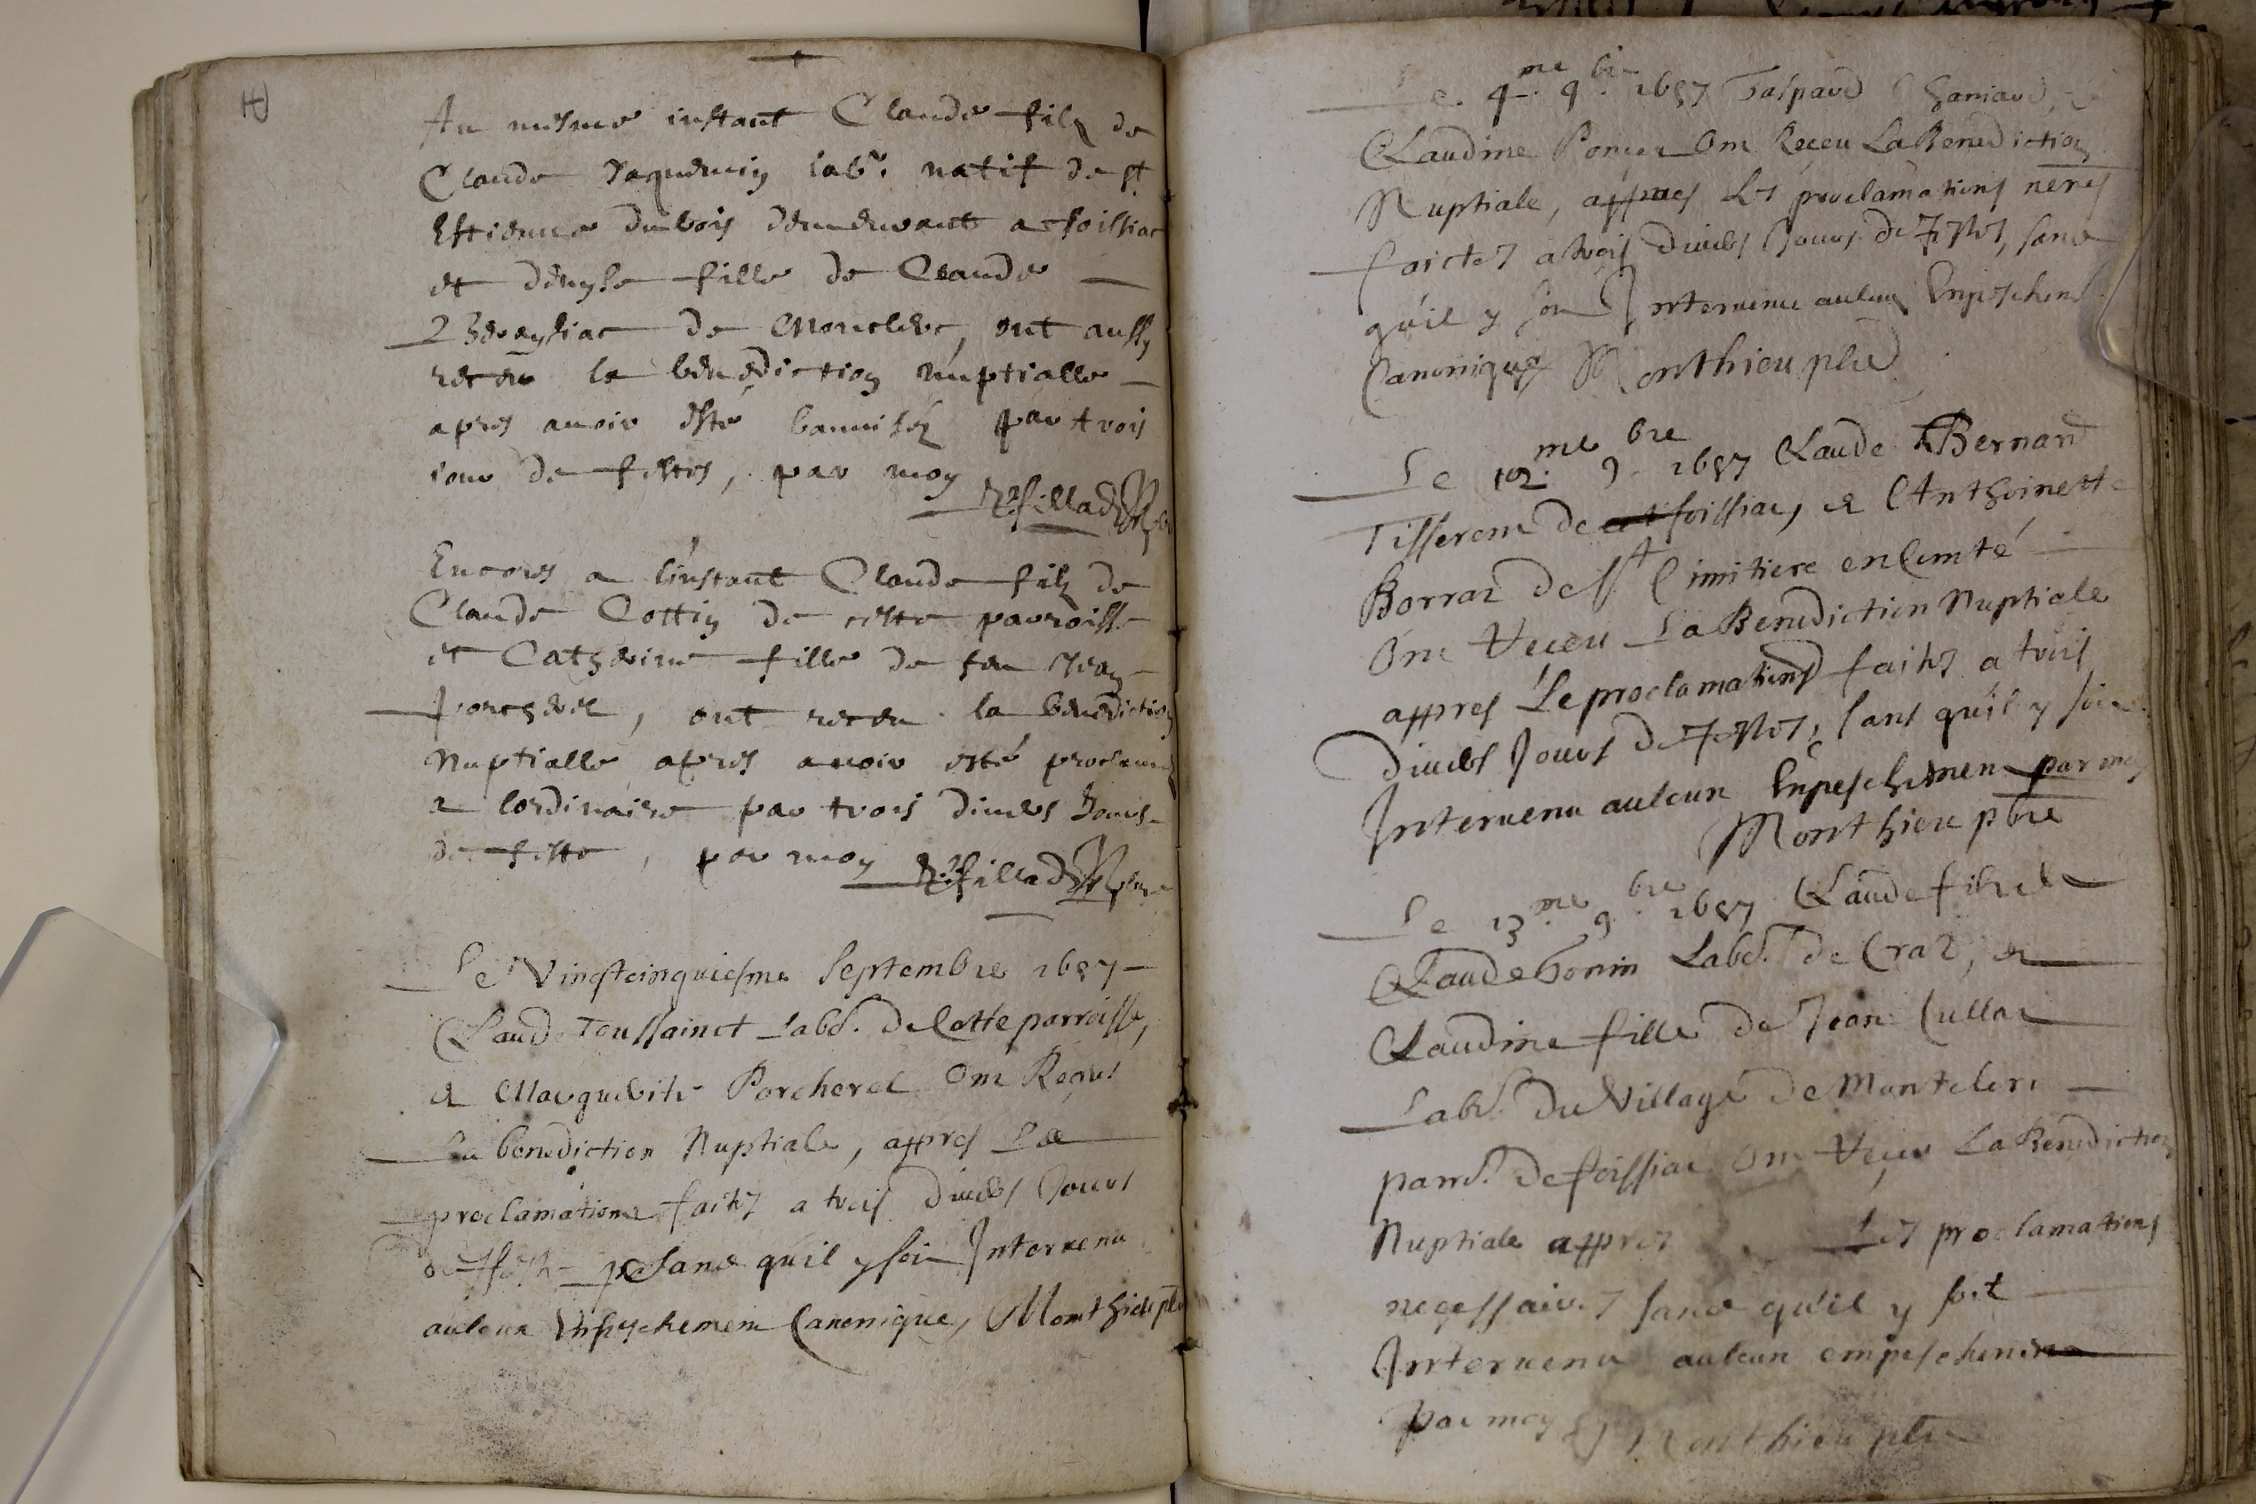 Au mesme instant Claude filz de
Claude Jaquemin lab.r natif de st
Estienne dubois demeurant a foissiac
et denyse fille de Claude
de Monclerc, ont aussy
receu la benediction nuptialle
apres auoir esté banniséz par trois
iour de festes, par moy
Encores a l'instant Claude filz de
Claude Cottin de cette parroisse
et Catherine fille de feu Jean
Porcherel, ont receu la benediction
Nuptialle apres auoir esté proclamez
a lordinaire par trois diuers Jours
de feste, par moy
Le Vingtcinquiesme Septembre 1657
Claude Toussainct Labd. de Cette parroisse,
et Marguerite Porcherel Ont Reçus
La benediction Nuptiale, appres Les
proclamations faites a trois diuers Jours
de feste sans quil y soit Interuenu
auleun Enpeschement Canonique, Monthieu pbre
Le 4me 9bre 1657 Gaspard Chaniard, et
Claudine Ponçet Ont Reçeu La Benediction
Nuptiale, appres Les proclamations neres
faictes a trois diuers Jours de Festes, sans
qu'il y soit Interuenu auleun Enpeschent
Canonique Monthieu pbre
Le 12.me 9.bre 1657 Claude Bernard
Tisserant de foissiac, et Anthoinette
Borraz de St Cimitiere en Comté
Ont Reçeu La Benediction Nuptiale
appres Les proclamations faites a trois
diuers Jours de Festes, sans qu'il y soit
Interuenu auleun Enpeschement par moy
Monthieu pbre
Le 13.me 9.bre 1657 Claude fils de
Claude Bonin Labd. de Craz, et
Claudine fille de Jean Cullat
Labd. Du Village de Montclerc
parrd. de foissiac Ont Reçeu La Benediction
Nuptiale appres Les proclamations
neçessaires sans qu'il y soit
Interuenu auleun empeschement
par moy Monthieu pbre